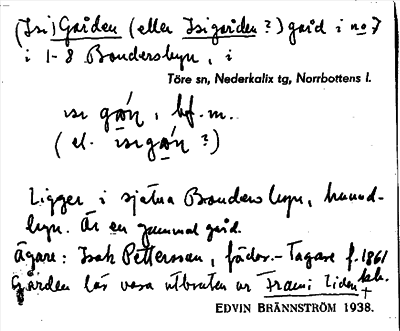 (Isi)Gården (eller Isigården?) gård i no 7
i 1-8 Bondersbyn, i
Töre sn, Nederkalix tg, Norrbottens l.
isi gá̊n, bf. m.
(el. isigá̊n?)
Ligger i själva Bondersbyn, huvud-
byn. Är en gammal gård.
Ägare: Isak Pettersson, föder.-Tagare f. 1861
Gården lär vara utbruten ur Frami Liden
EDVIN BRÄNNSTRÖM 1938.